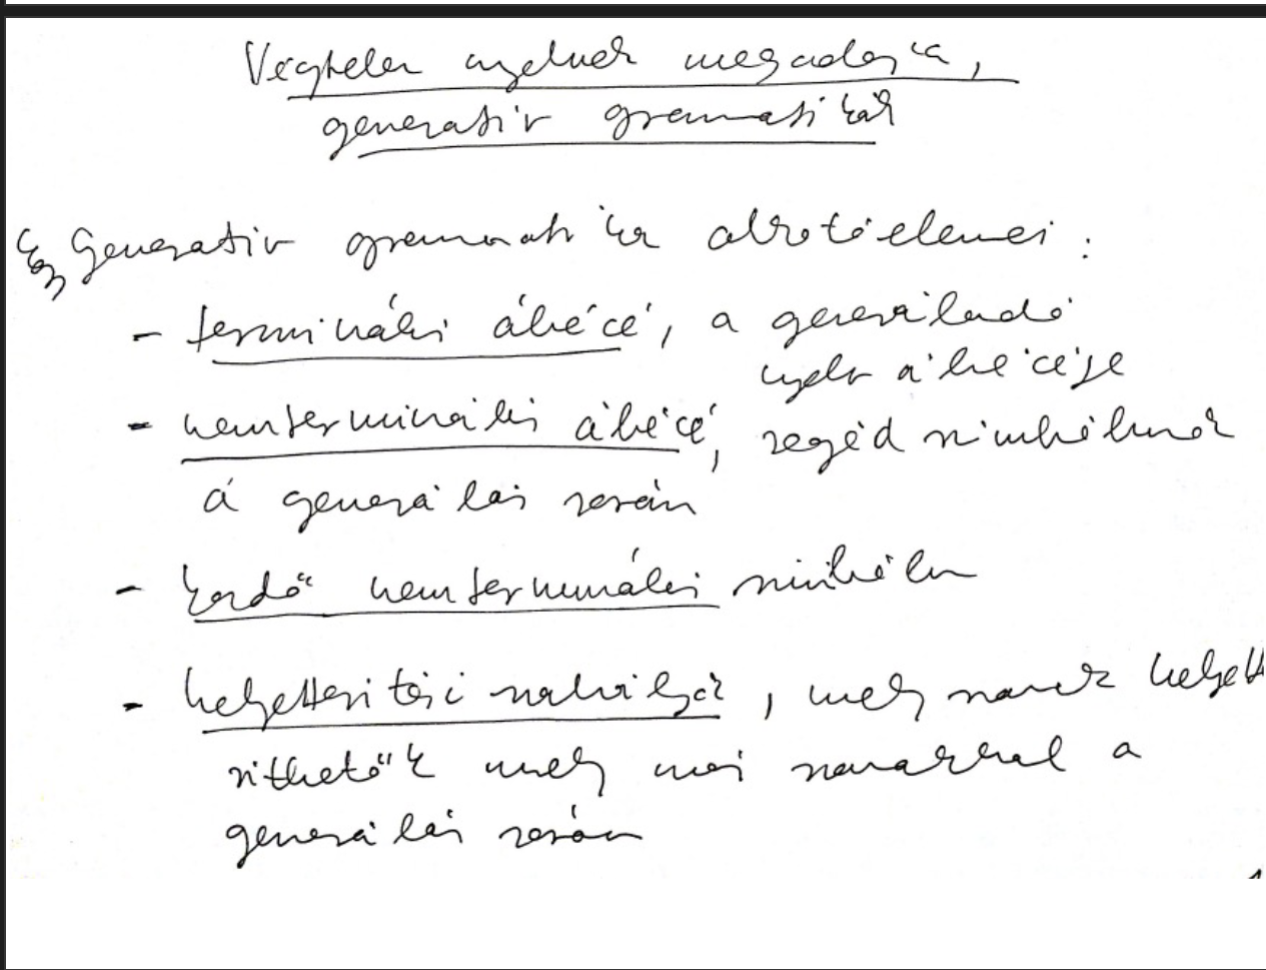 Végtelen nyelvek megadása,
generatív grammatikák
Egy generatív grammatika alkotóelemei:
- terminális ábécé, a generálandó
nyelv ábécéje
- nemterminális ábécé, segéd szimbólumok
a generálás során
- kezdő nemterminális szimbólum
- helyettesítési szabályok, mely szavak helyett
síthetők mely más szavakkal a
generálás során